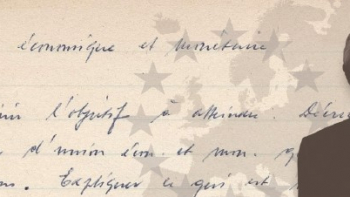 économique et monétaire
l'objectif à atteindre. Décri
d'union écon. et mon.
Expliquer ce qui est